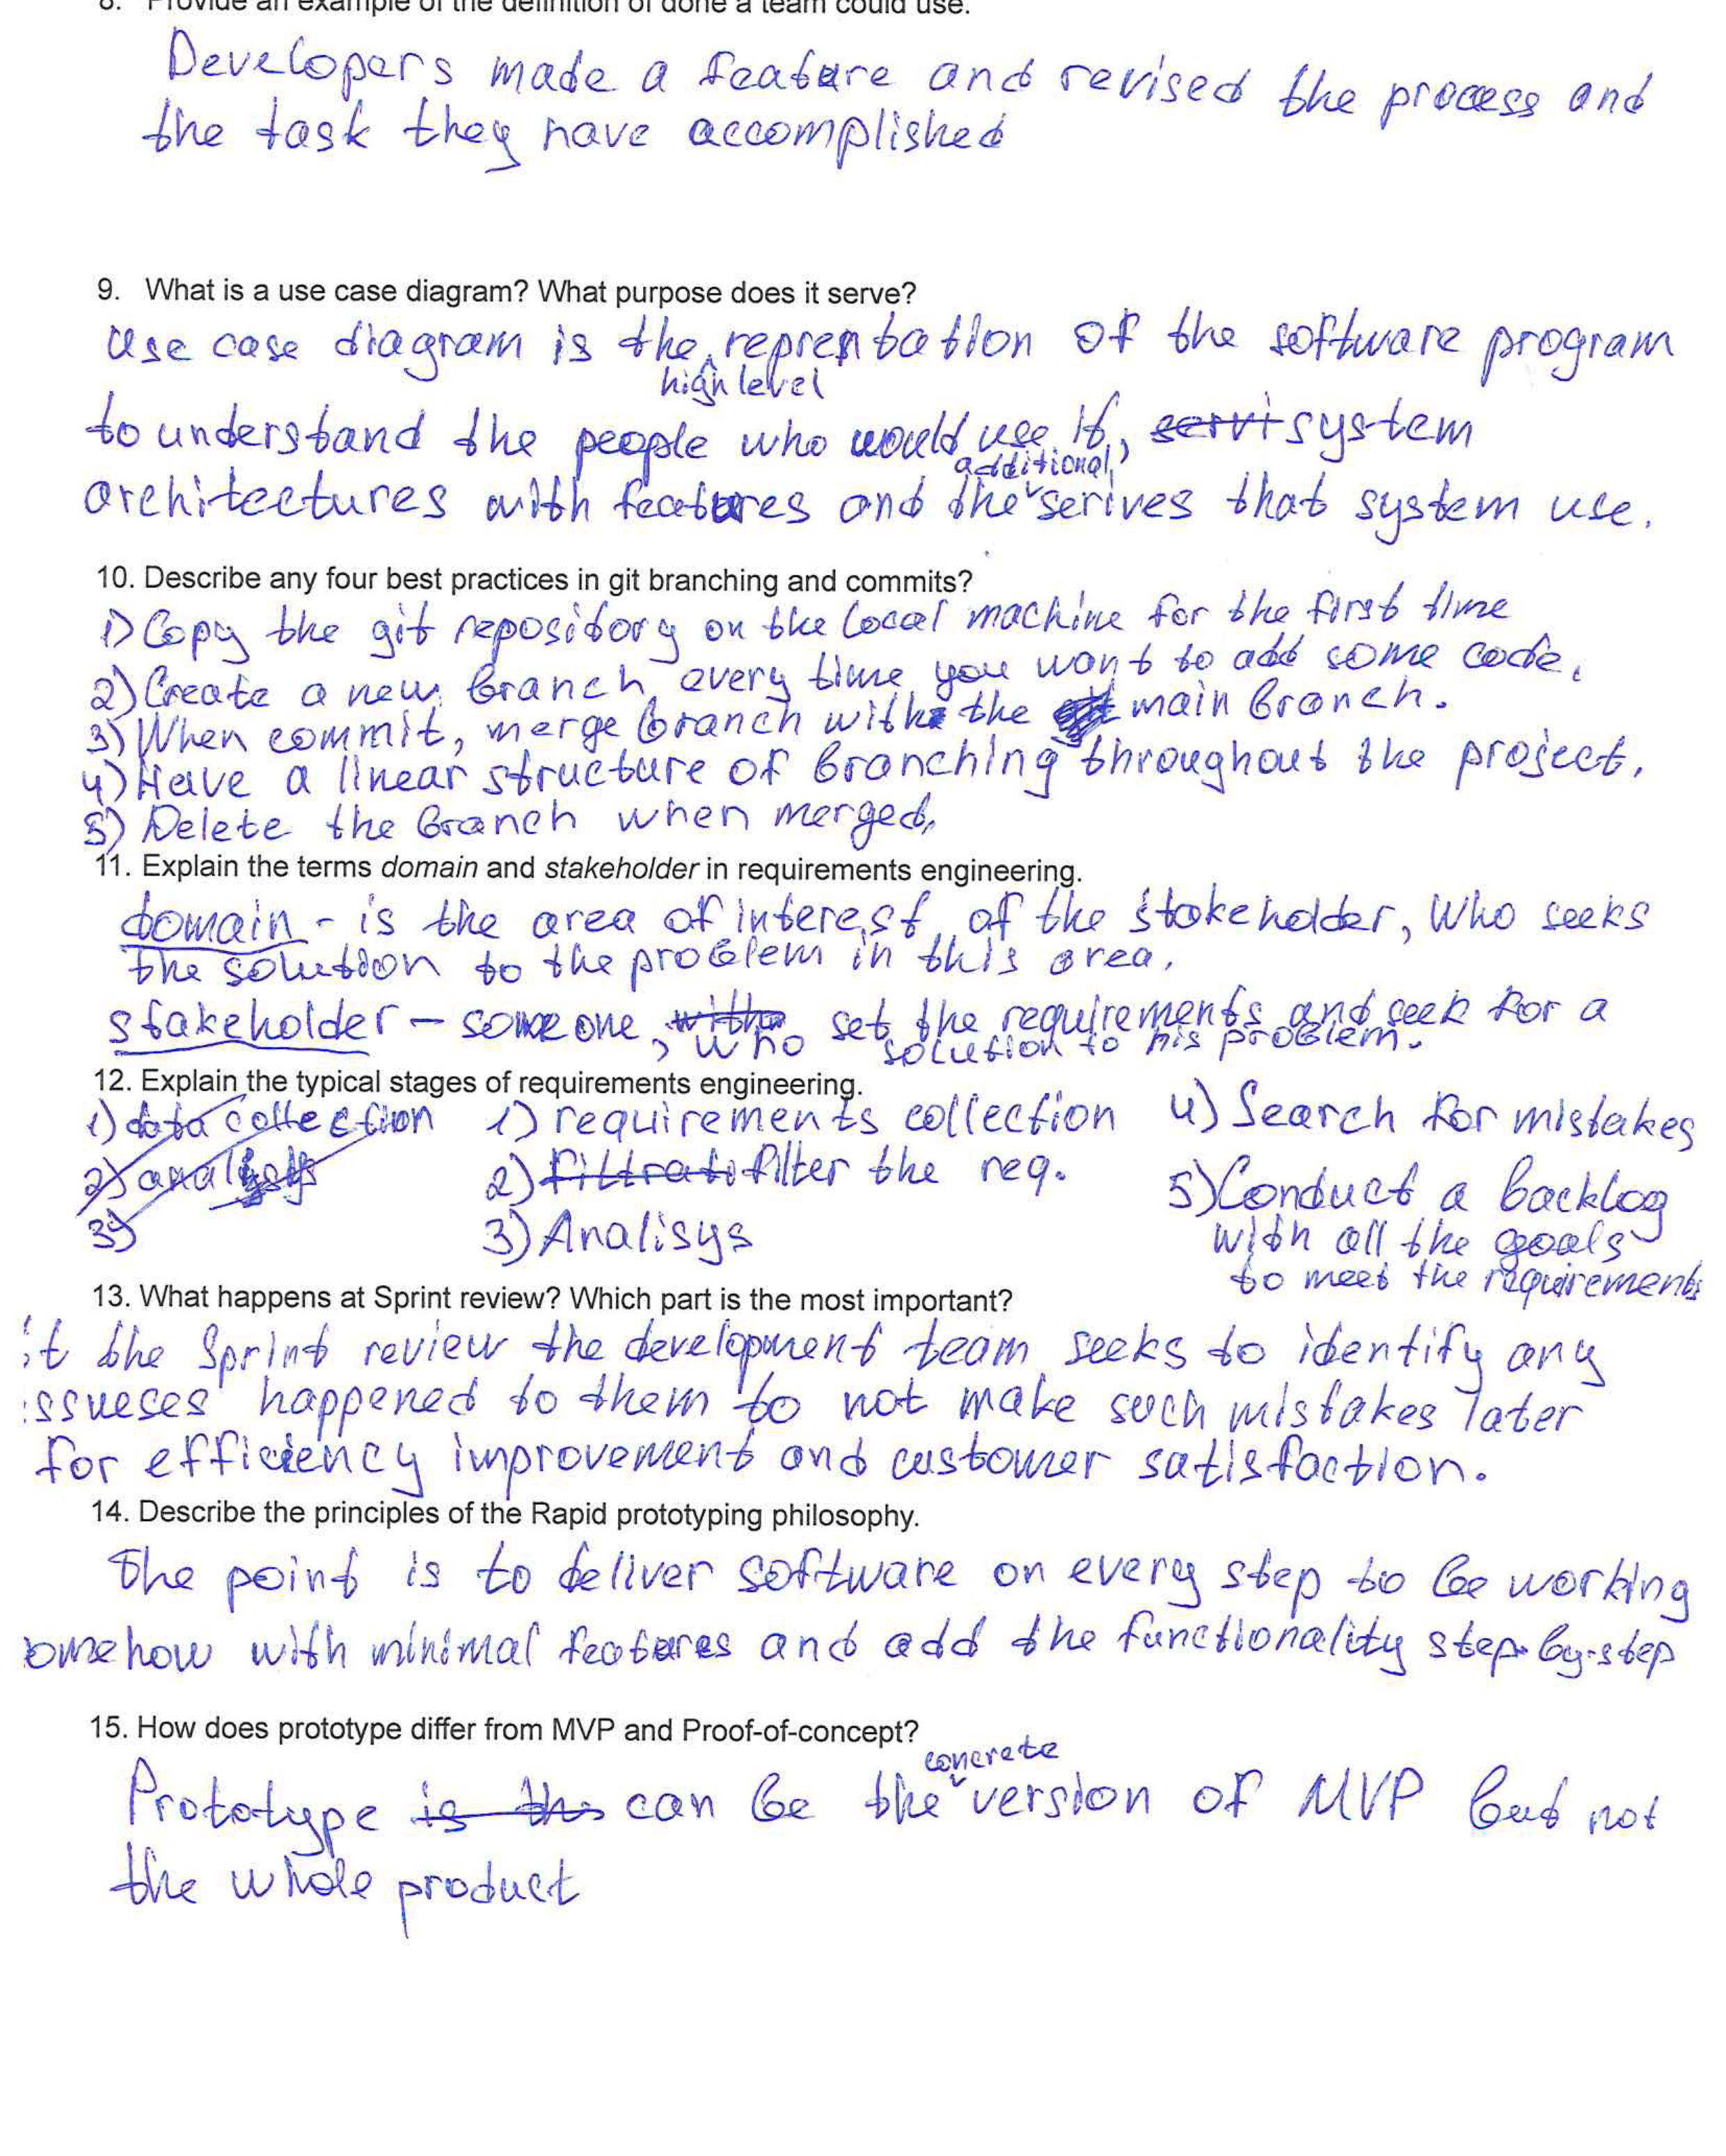 8. Provide an example of the definition of done a team could use.
Developers made a feature and revised the process and
the task they have accomplished
9. What is a use case diagram? What purpose does it serve?
Use case diagram is the high level reprentation of the software program
to understand the people who would use it, servi system
architectures with features and the additional serives that system use.
10. Describe any four best practices in git branching and commits?
1) Copy the git repository on the local machine for the first time
2) Create a new branch every time you want to add some code.
3) When commit, merge branch with the main branch.
4) Have a linear structure of branching throughout the project.
5) Delete the branch when merged.
11. Explain the terms domain and stakeholder in requirements engineering.
domain - is the area of interest of the stakeholder, who seeks
the solution to the problem in this area.
stakeholder - someone, who set the requirements and seek for a
solution to his problem.
12. Explain the typical stages of requirements engineering.
1) data collection
2) analysis
3)
1) requirements collection
2) filtrati filter the req.
3) Analisys
4) Search for mistakes
5) Conduct a backlog
with all the goals
to meet the requirements
13. What happens at Sprint review? Which part is the most important?
it the Sprint review the development team seeks to identify any
issueses happened to them to not make such mistakes later
for efficiency improvement and customer satisfaction.
14. Describe the principles of the Rapid prototyping philosophy.
The point is to deliver software on every step to be working
omehow with minimal features and add the functionality step-by-step
15. How does prototype differ from MVP and Proof-of-concept?
Prototype is the can be the concrete version of MVP but not
the whole product